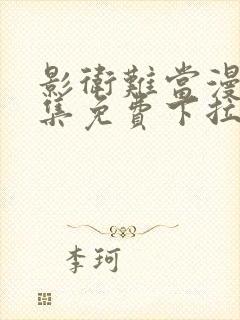 影衛難當漫
集免費下拉
李珂